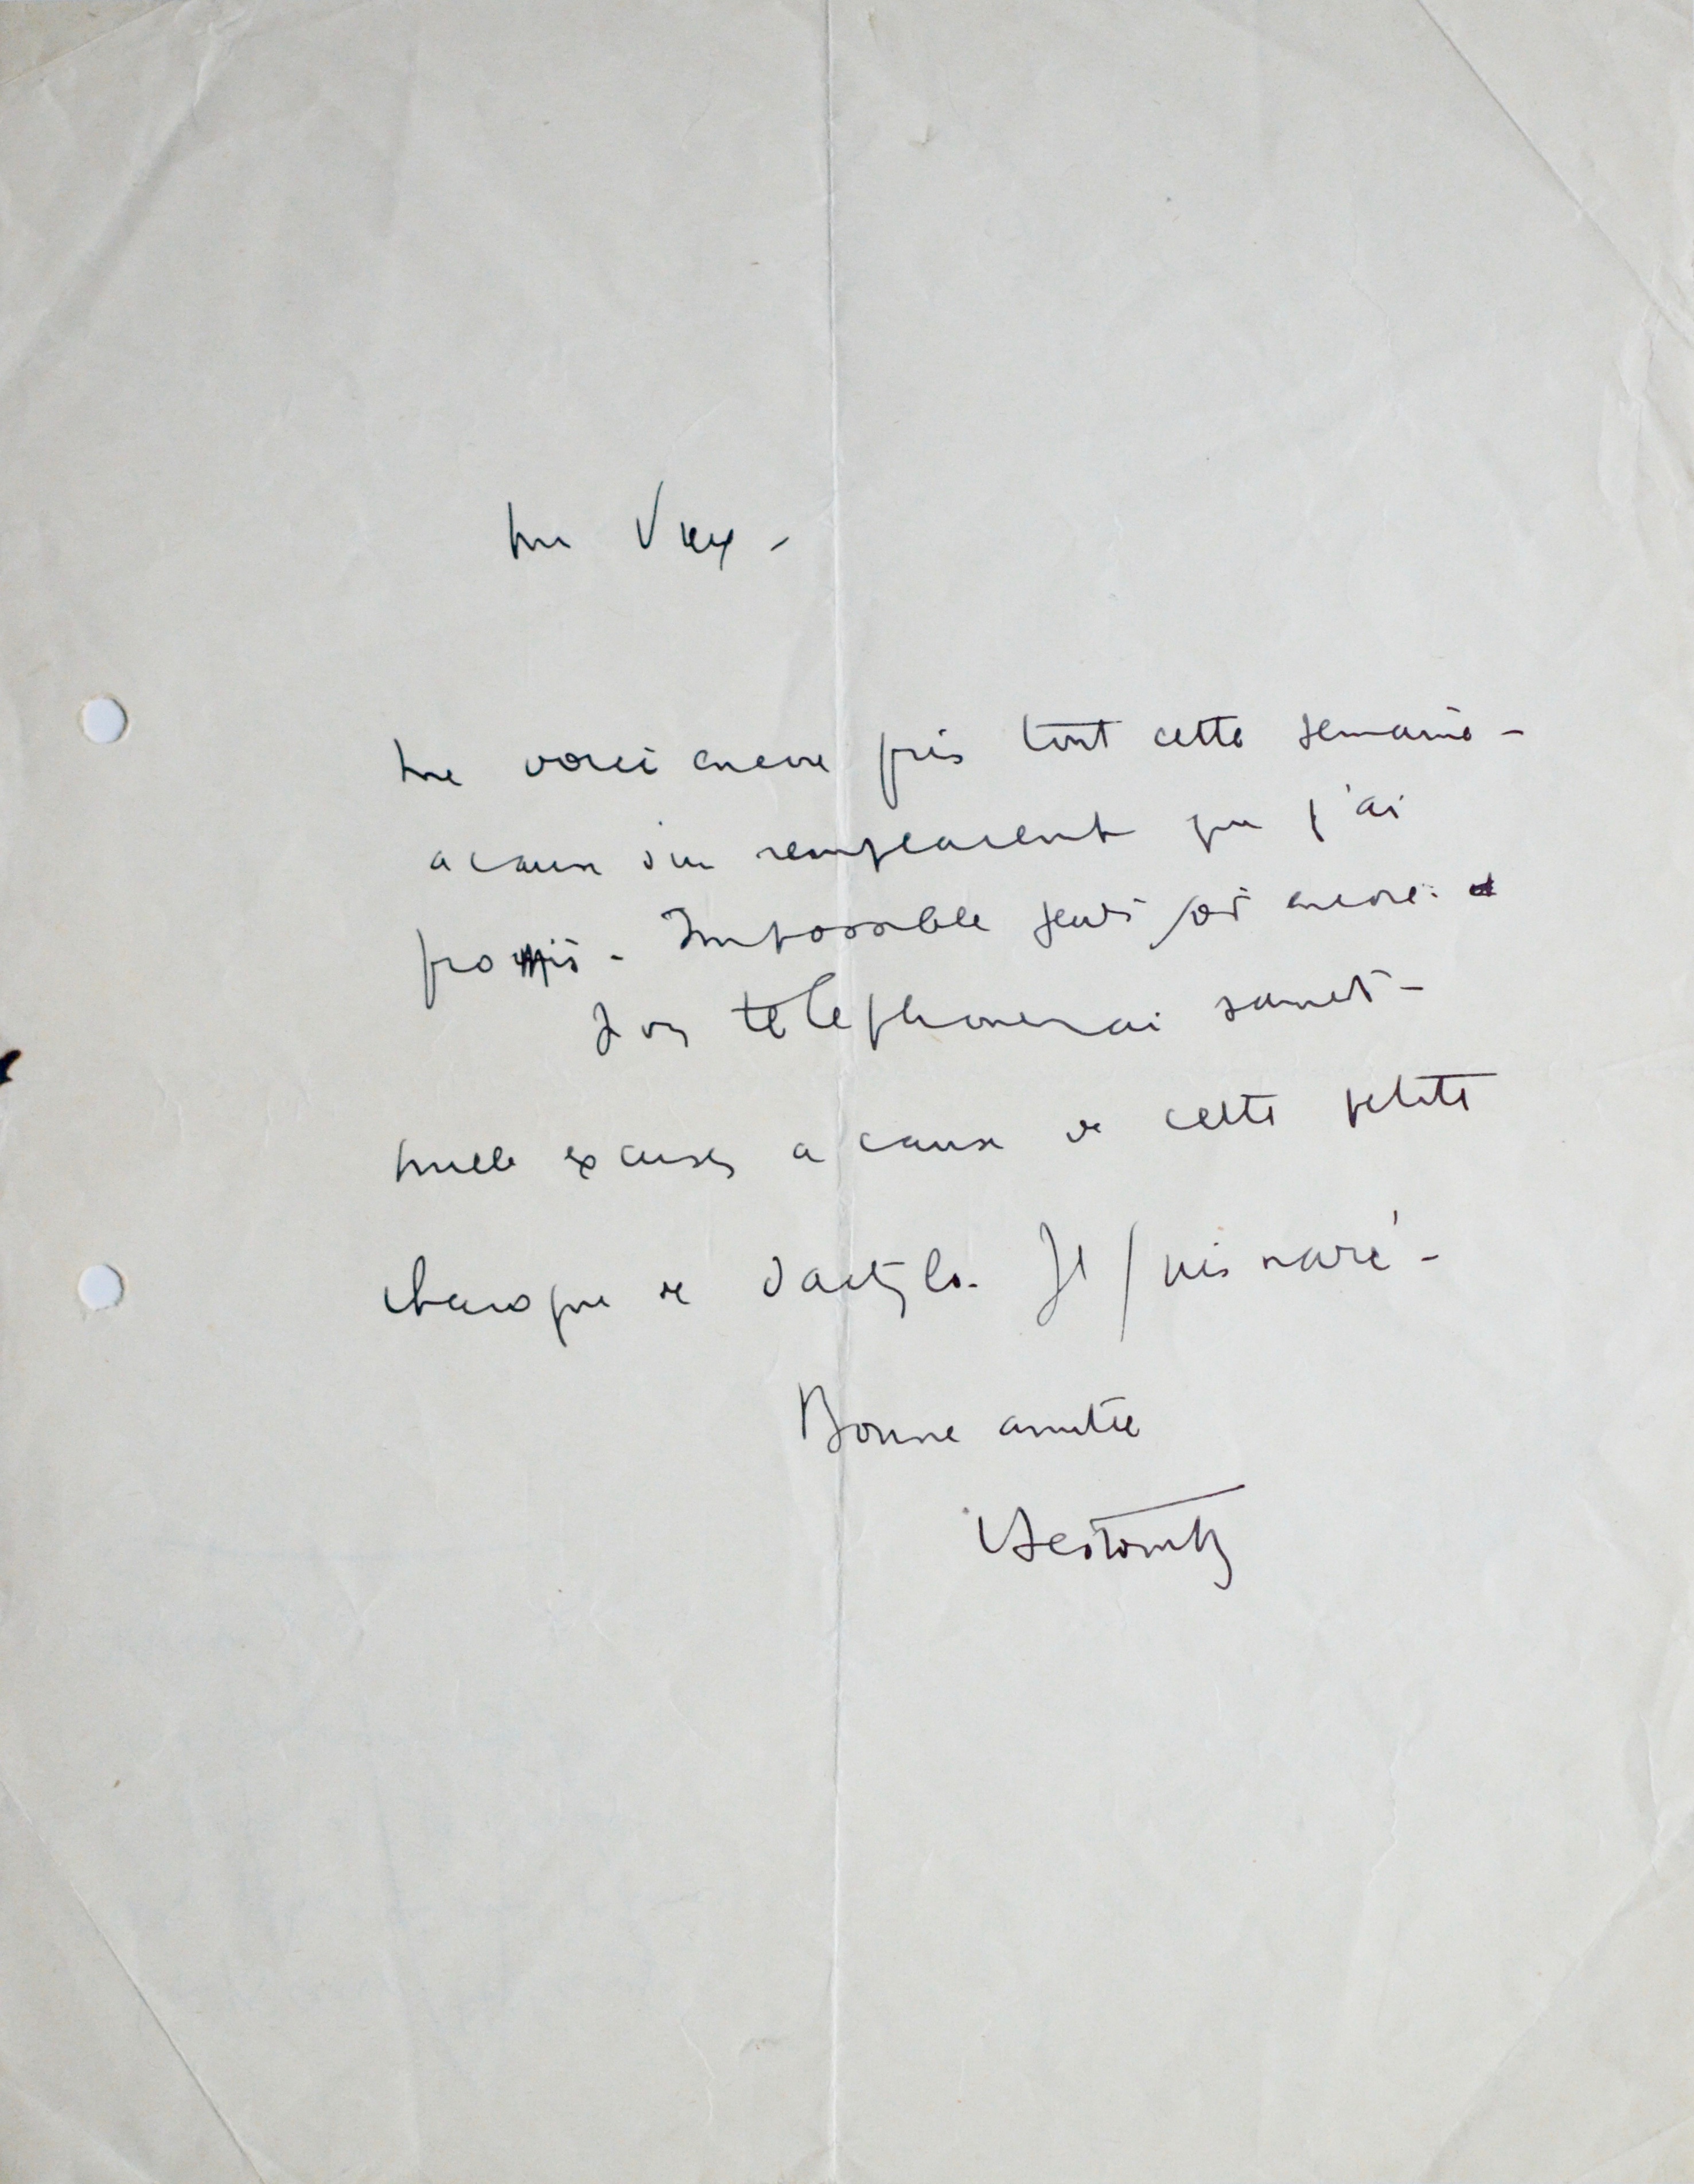 Mon Vieux -
Me voici encore pris tout cette semaine -
a cause d'un remplacent que j'ai
promis - Impossible jeudi encore.
Vs téléphonerai samedi -
mille excuses a cause de cette petite
de dactylo. Je suis navré -
Bonne amitié